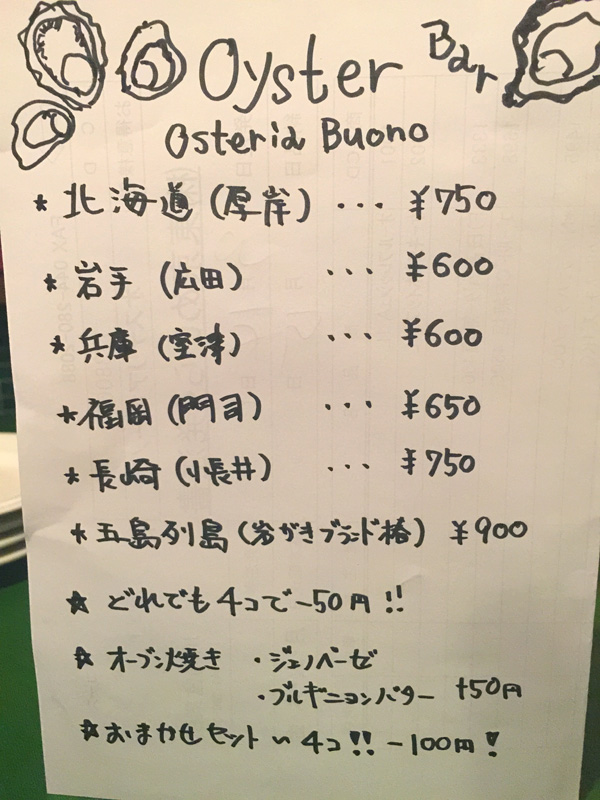 Oyster Bar
Osteria Buono
* 北海道 (厚岸) ... ¥750
* 岩手 (広田) ... ¥600
* 兵庫 (室津) ... ¥600
* 福岡 (門司) ... ¥650
* 長崎 (小長井) ... ¥750
* 五島列島 (岩がきブランド椿) ¥900
☆ どれでも4コで-50円!!
☆ オーブン焼き ・ジェノベーゼ
・ブルギニョンバター +50円
☆ おまかせセット〜4コ!! -100円!